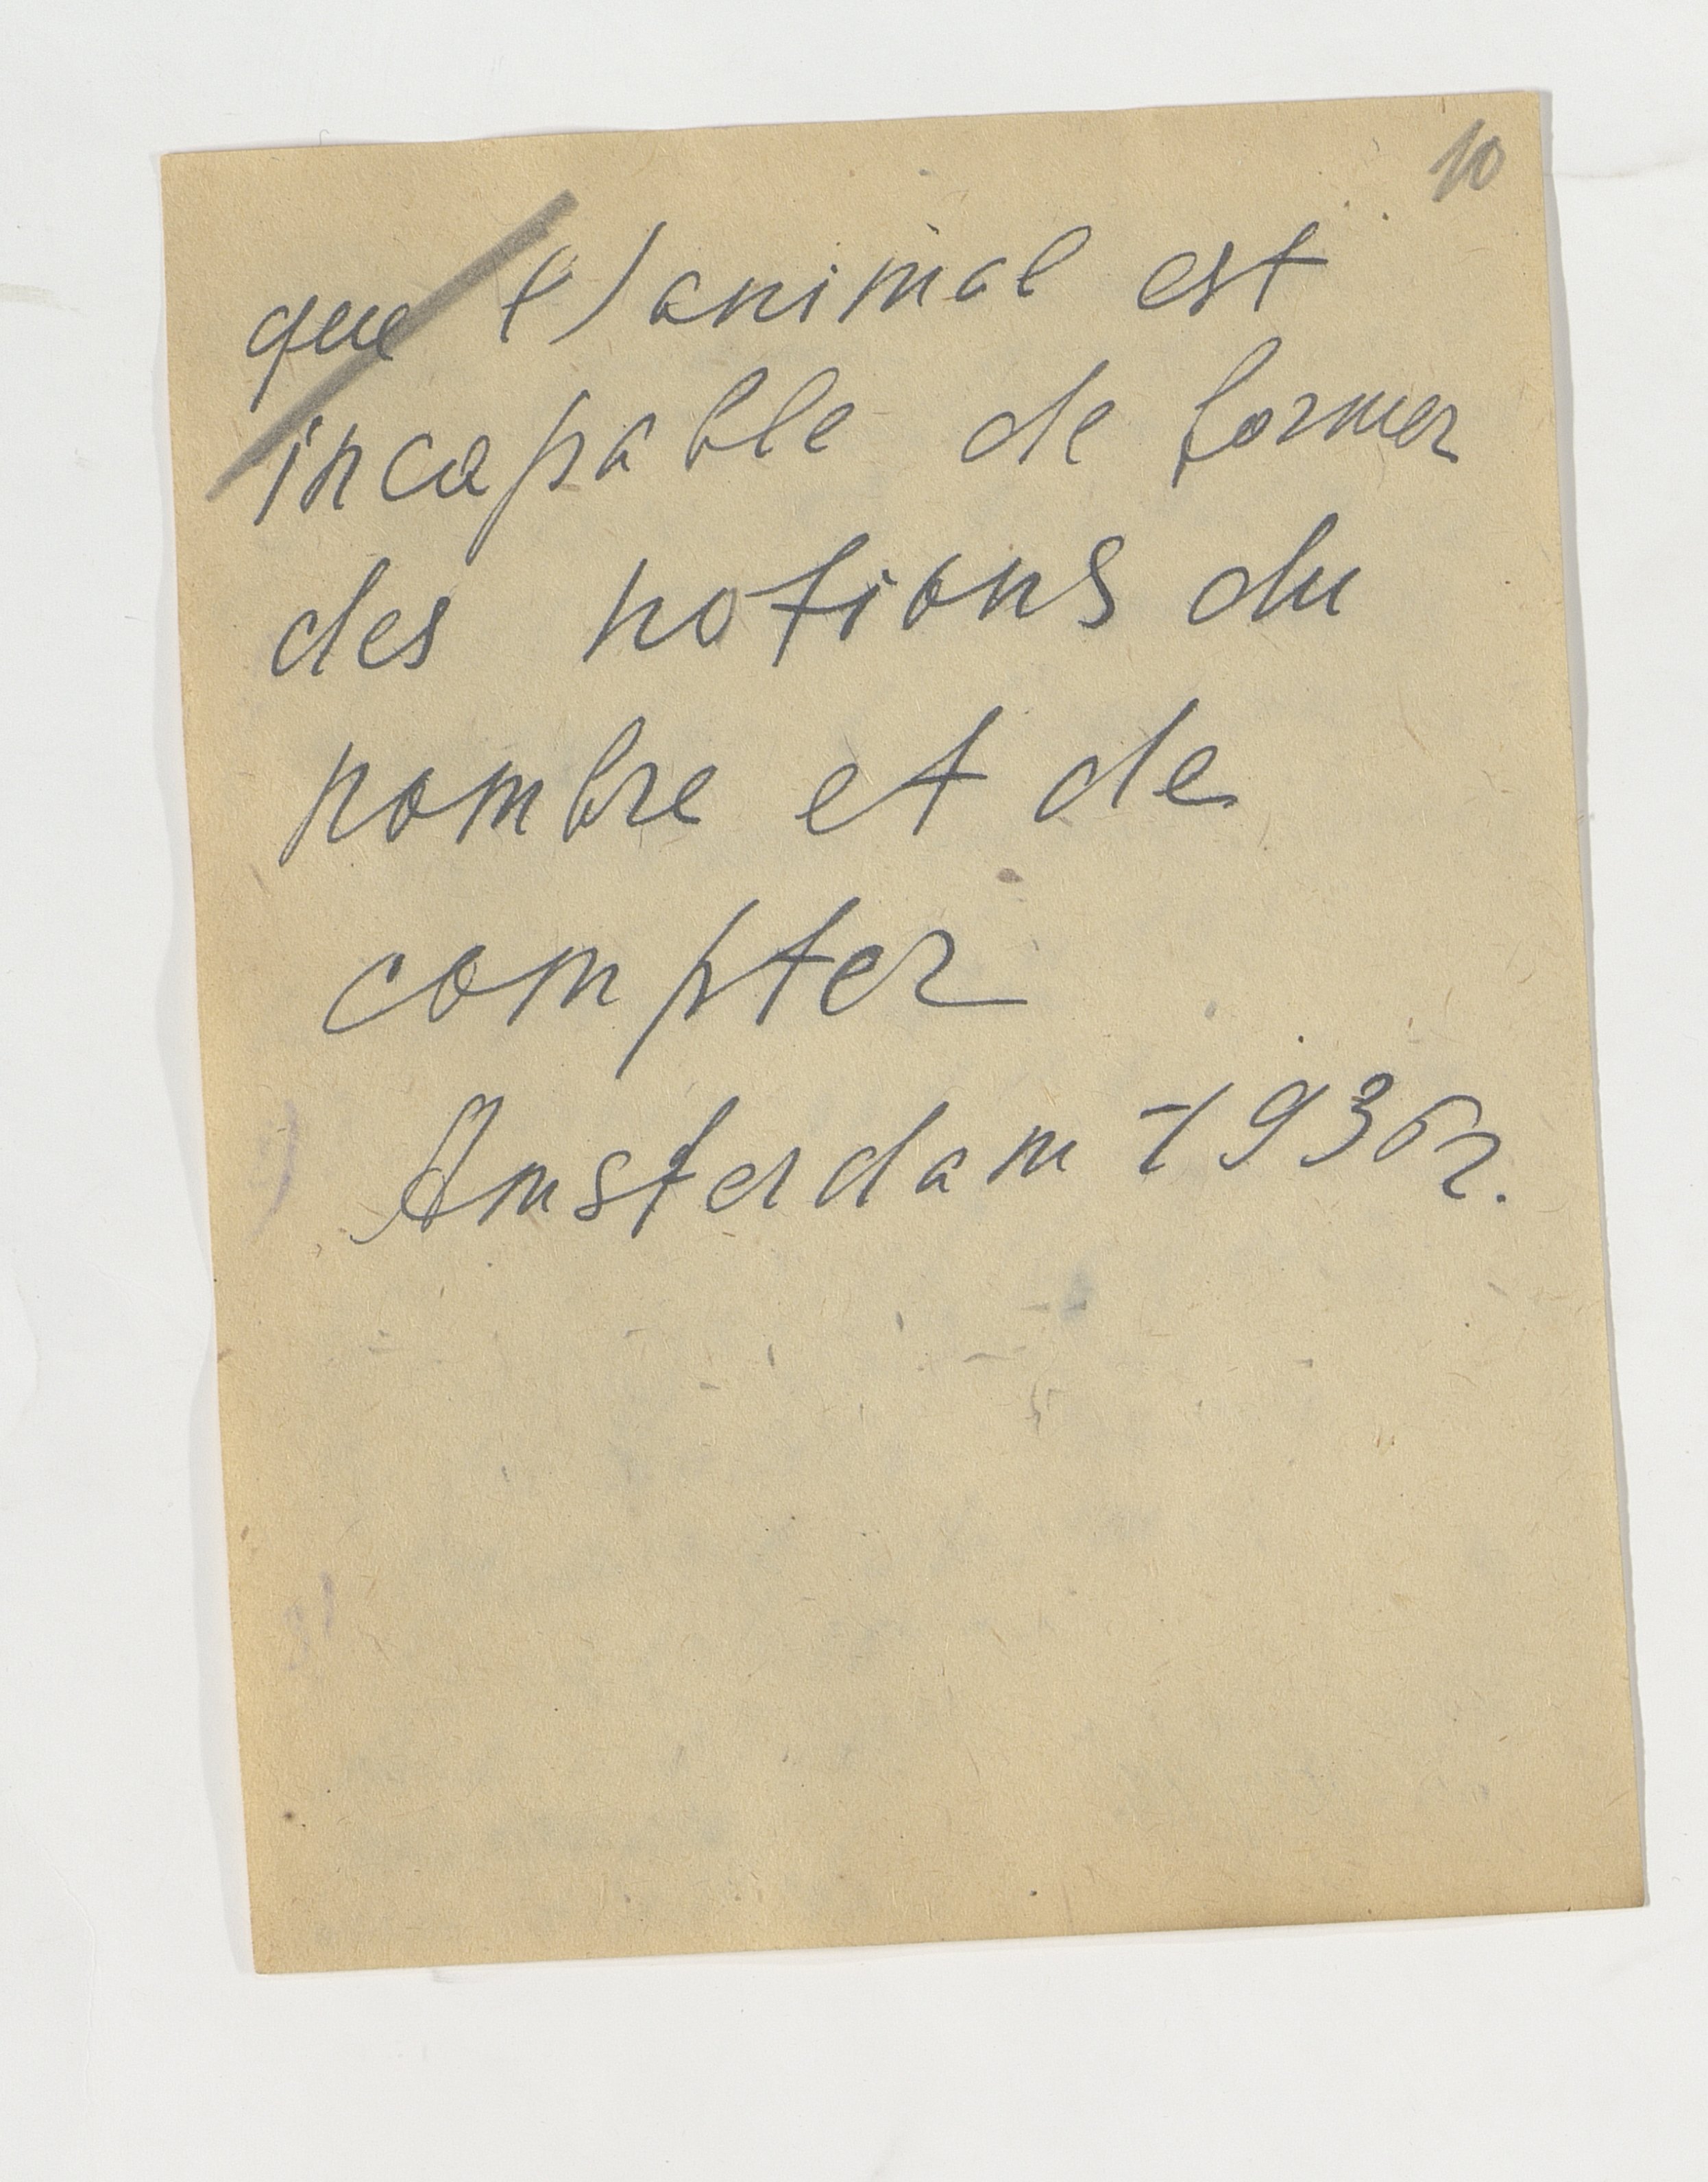 10
que l'animal est
incapable de former
des notions du
nombre et de
compter
Amsterdam 1936 г.